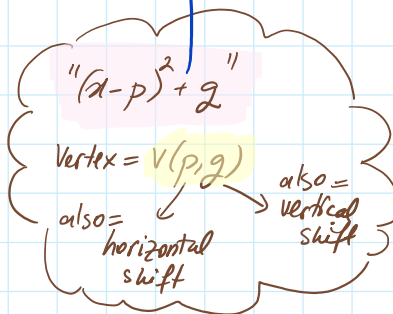 "(x-p)² + g"
Vertex = V(p,g)
also =
horizontal
shift
also =
vertical
shift